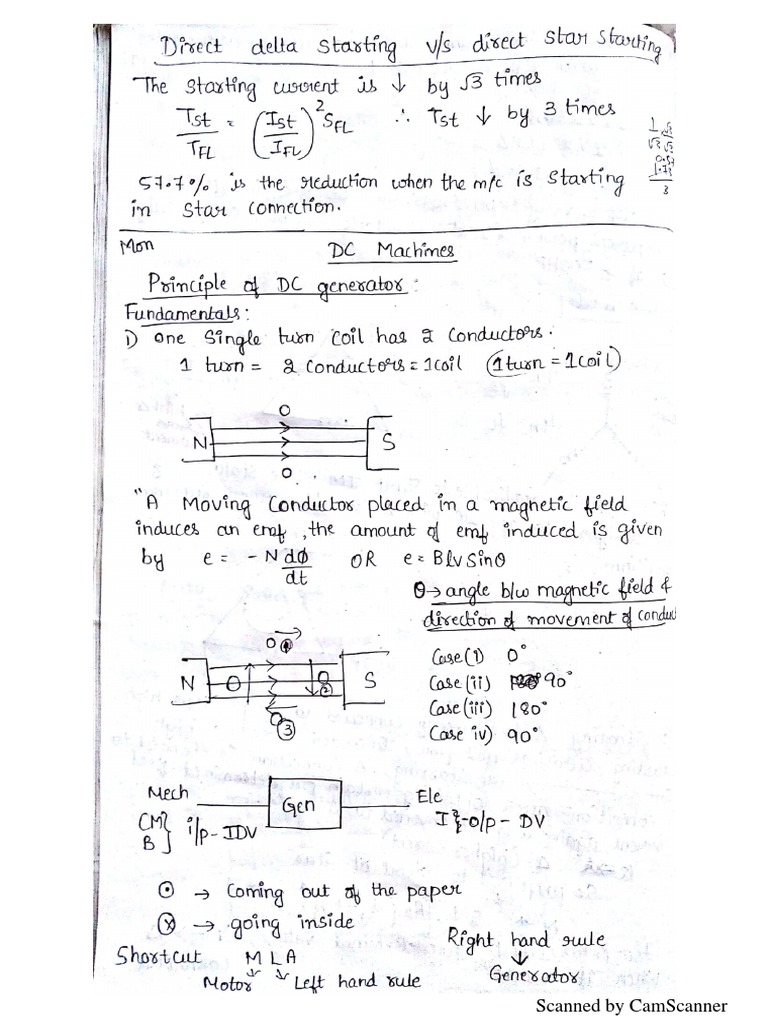 Direct delta starting v/s direct star starting
The starting current is ↓ by √3 times
Tst/TFL = (Ist/IFL)² SFL ∴ Tst ↓ by 3 times
57.7% is the reduction when the m/c is starting
in star connection.
Mon DC Machines
Principle of DC generator:
Fundamentals:
1) one single turn coil has 2 conductors.
1 turn = 2 conductors = 1 coil (1 turn = 1 coil)
N S
"A Moving conductor placed in a magnetic field
induces an emf, the amount of emf induced is given
by e = - N dϕ/dt OR e = Blv Sinθ
θ → angle b/w magnetic field &
direction of movement of conduc
Case (i) 0°
Case (ii) 90°
Case (iii) 180°
Case iv) 90°
① 
N ② S
③
Mech Gen Ele
CM} i/p - IDV I}-o/p - DV
B}
⊙ → Coming out of the paper
ⓧ → going inside
Right hand rule
↓
Generator
Shortcut M L A
Motor Left hand rule
Scanned by CamScanner